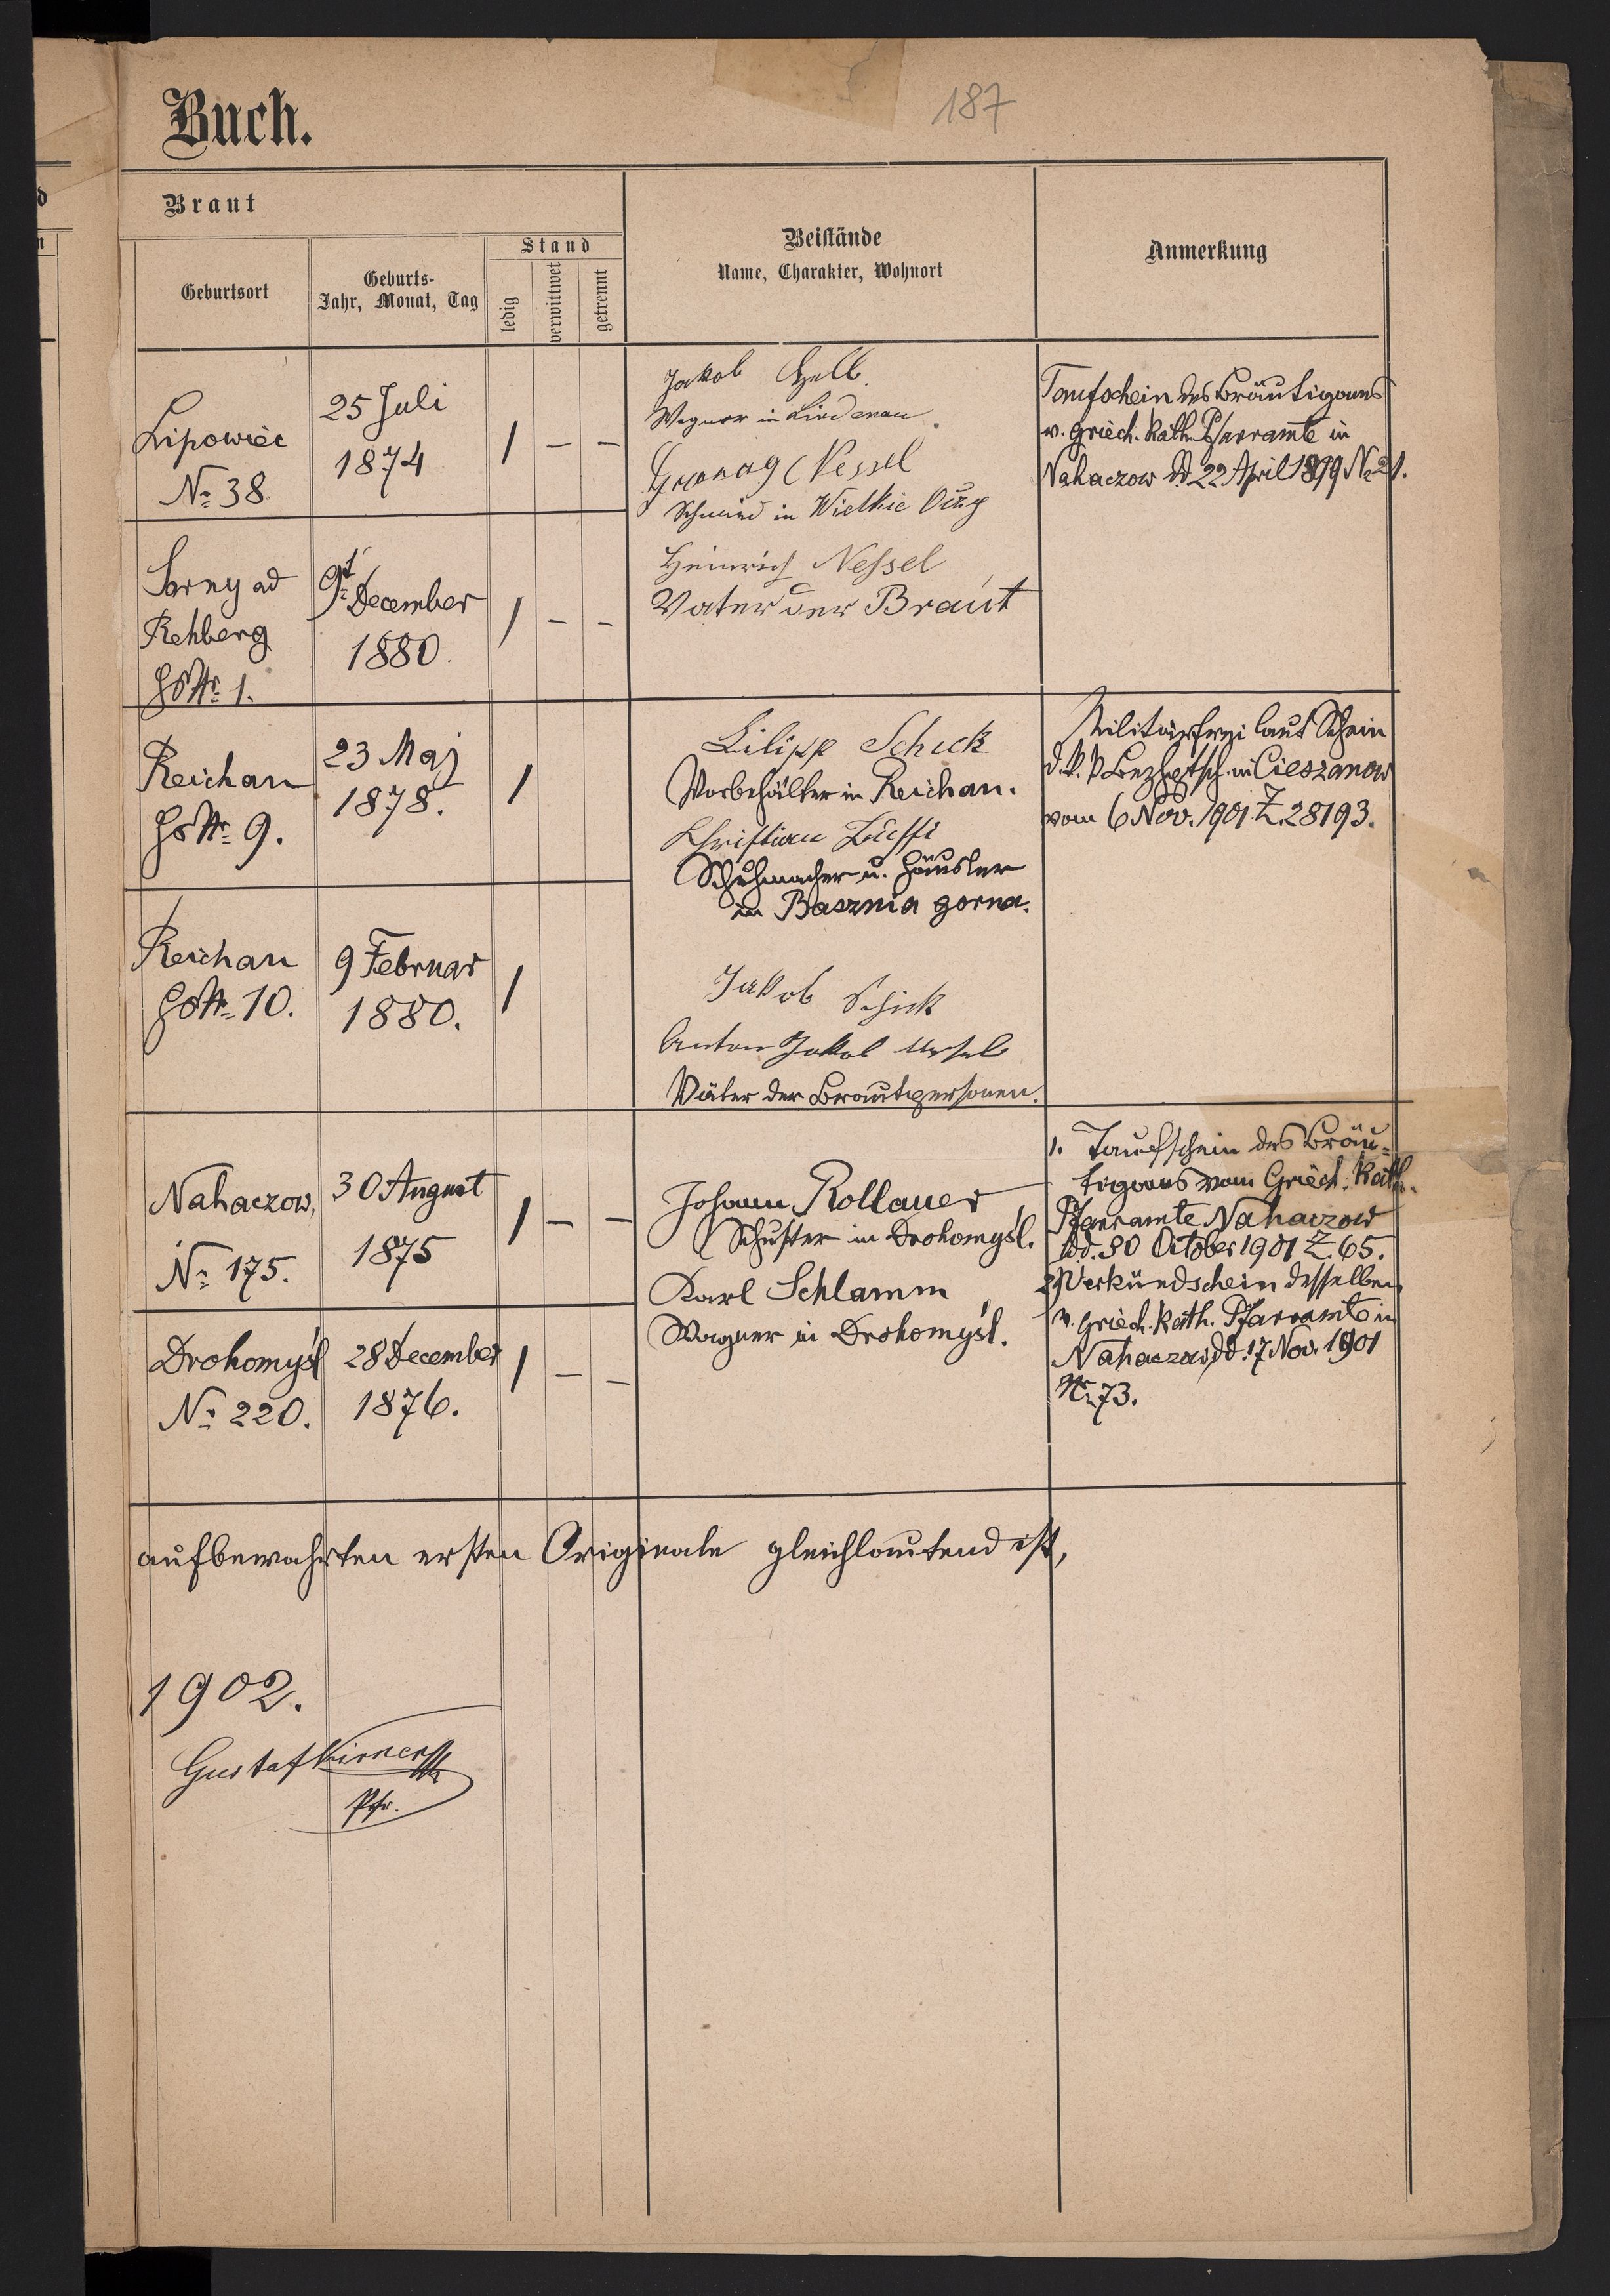 187
Buch.
Braut
Geburtsort
Geburts-
Jahr, Monat, Tag
Stand
ledig
verwittwet
getrennt
Beistände
Name, Charakter, Wohnort
Anmerkung
Lipowièc
No: 38.
25 Juli
1874
Jakob
Wagner in Lindenau.
Nessel
Schmied in Wielkie Oczy
Taufschein des Bräutigams
v. griech. kath. Pfarramte in
Nahaczow dd. 22 April 1899 No 21.
Sorny ad
Rehberg
HsNr. 1.
9t December
1880.
Heinrich Nessel
Vater der Braut
Reichau
HsNr. 9.
23 Maj
1878.
Filipp Schick
in Reichau.
Christian
Schuhmacher u. Häusler
in Basznia gorna.
Militärfrei laut Schein
d. k. k. Bezhptsch. in Cieszanow
vom 6 Nov. 1901 Z. 28193.
Reichau
HsNr. 10.
9 Februar
1880.
Jakob Schick
Anton Jakob
Väter der Brautpersonen.
Nahaczow,
No: 175.
30 August
1875
Johann Rollauer
Schuster in Drohomyśl.
Karl Schlamm
Wagner in Drohomyśl.
1. Taufschein des Bräu-
tigams vom Griech. Kath.
Pfarramte Nahaczow
dd. 30 October 1901 Z. 65.
2) Verkündschein desselben
v. Griech. Kath. Pfarramte in
Nahaczow dd. 17 Nov. 1901
Nr. 73.
Drohomyśl
No: 220.
28 December
1876.
aufbewahrten ersten Originale gleichlautend ist,
1902.
Gustaf Kirner
Pfr.